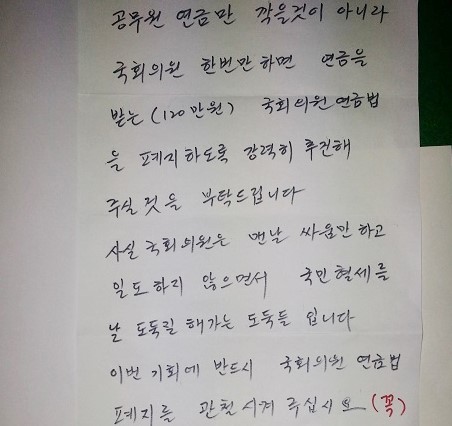 공무원 연금만 깍을것이 아니라
국회의원 한번만하면 연금을
받는(120만원) 국회의원연금법
을 폐지하도록 강력히 투건해
주실 것을 부탁드립니다
사실 국회의원은 맨날 싸움만하고
일도하지 않으면서 국민혈세를
날 도둑질 해가는 도둑들 입니다
이번 기회에 반드시 국회의원 연금법
폐지를 관철 시켜 주십시요 (꼭)